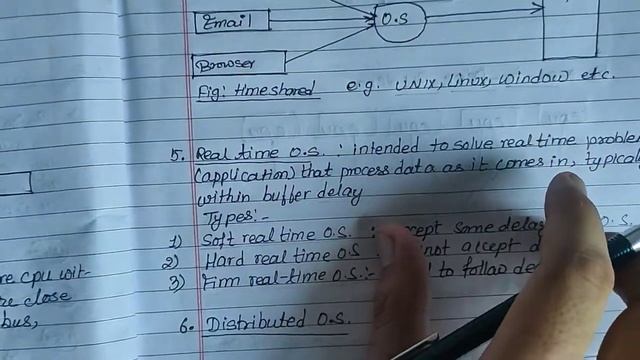 Email
O.S
Browser
Fig: time shared e.g. UNIX, Linux, Window etc.
5. Real time O.S. : intended to solve real time
(application) that process data as it comes in,
within buffer delay
Types:-
1) Soft real time O.S. : some O.S.
2) Hard real time O.S not accept
3) Firm real-time O.S:- to follao
6. Distributed O.S.
re cpu wit-
re close
bus,